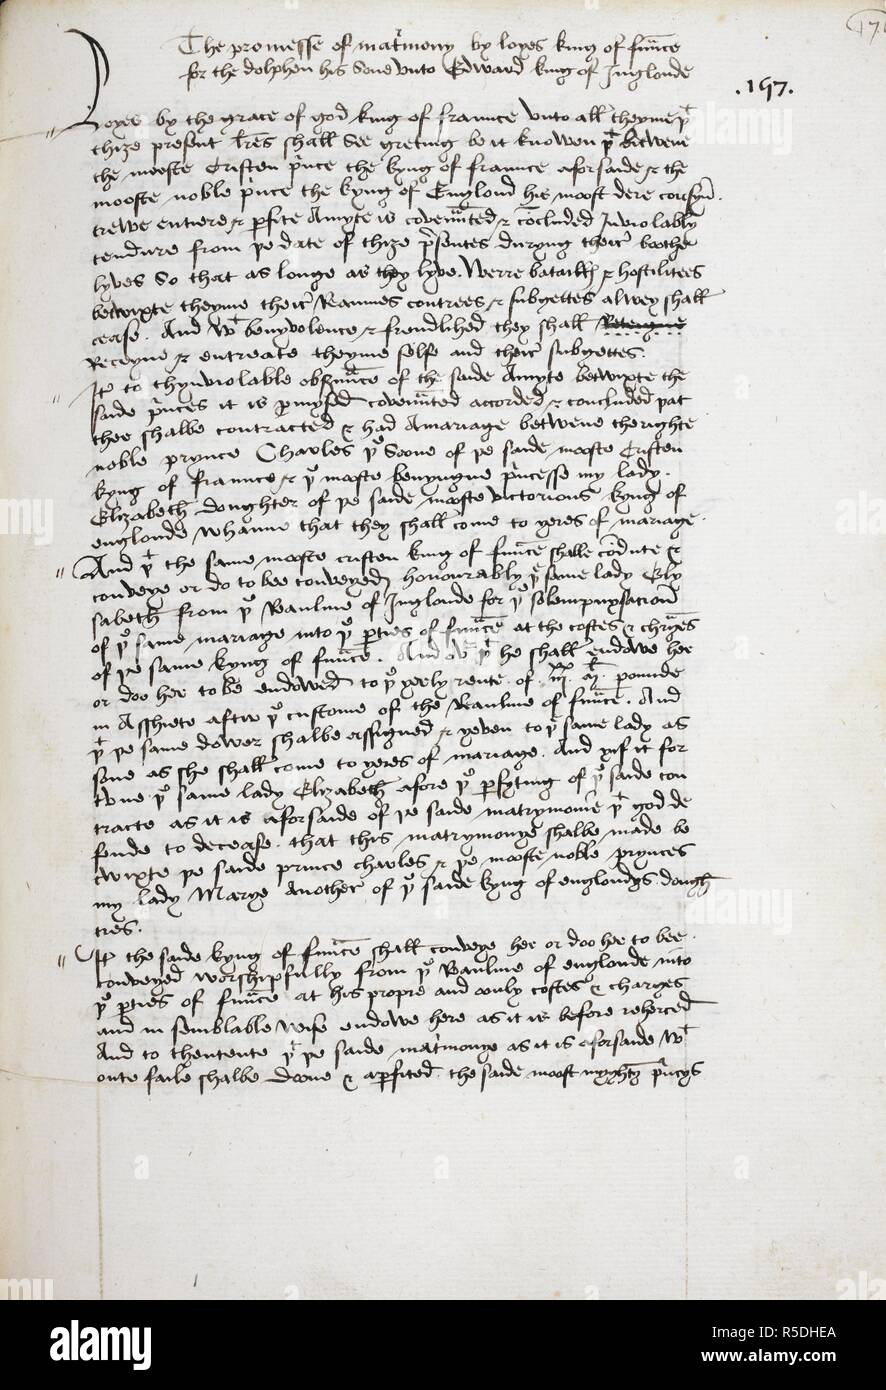 The promesse of mat'mony by loyes king of fraunce
for the dolphen his sone unto Edward king of Inglonde
.197.
Loyes by the grace of god king of fraunce unto all theyme þt
thize present l'res shall See greting be it knowen þt betwene
the mooste Cristen p'nce the kyng of fraunce aforsaide & the
mooste noble p'nce the kyng of Englond his moost dere cousyn.
trewe entiere & p'fite Amyte is covenũted & cõcluded Inviolably
tendure from þe date of thize p'sentes duryng their boothe
lyves So that as longe as they lyve. Werre bataill & hostilitees
betwixte theyme their Reaumes contrees & subgettes alwey shall
cease. And wt benyvolence & frendlihed they shall
Receyve & entreate theyme self and their subgettes.
It' to thynviolable obs'uãce of the saide Amyte betwixte the
saide p'nces it is p'mysed covenũted accorded & concluded þat
ther shalbe contracted & had A mariage betwene the righte
noble prynce Charles þe Soone of þe saide mooste Cristen
kyng of fraunce & þe mooste benyngne p'ncesse my lady.
Elizabeth doughter of þe saide mooste victorious kyng of
englonde whanne that they shall come to yeres of mariage.
And þt the same mooste cristen king of fraunce shalle cõdute &
conveye or do to bee conveyed honourably þe same lady Ely
sabeth from þe Reaulme of Inglonde for þe solempnysacion
of þe same mariage into þe p'ties of fraunce at the costes & chrges
of þe same kyng of fraunce. And wt þt he shall endowe her
or doo her to be endowed to þe yerly rente of pounde
in Assiete aftir þe custome of the Reaulme of fraunce. And
þt þe same dower shalbe assigned & yeven to þe same lady as
sone as she shall come to yeres of mariage. And yif it for
tune þe same lady Elizabeth afore þe p'fyting of þe saide con
tracte as it is aforsaide of þe saide matrymonie þt god de
fende to decease. that this matrymonye shalbe made be
twixte þe saide prince charles & þe mooste noble prynces
my lady Marye Another of þe saide kyng of englondys dough
tres.
It' the saide kyng of fraunce shall conveye her or doo her to bee
conveyed worshipfully from þe Reaulme of englonde into
þe p'ties of fraunce at his propre and oonly costes & charges
and in semblable wise endowe here as it is before reherced
And to thentente þt þe saide mat'monye as it is aforsaide wt
oute faile shalbe doone & ap'fited the saide moost myghty p'ncys
alamy
a
R5DHEA
www.alamy.com